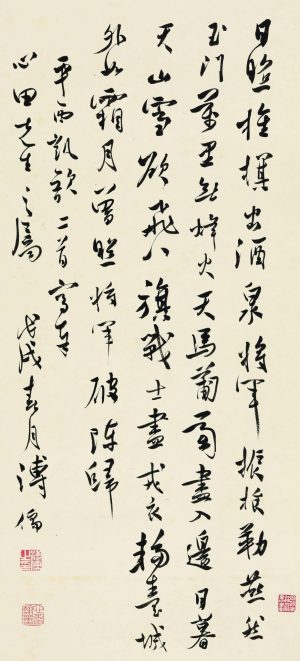 日照旌旗出酒泉將軍振旅勒燕然
玉門萬里無烽火天馬葡萄盡入邊日暮
天山雪欲飛八旗戰士盡戎衣輪臺城
外如霜月曾照將軍破陣歸
平西凱歌二首寫奉
心田先生之屬 戊戌春月溥儒